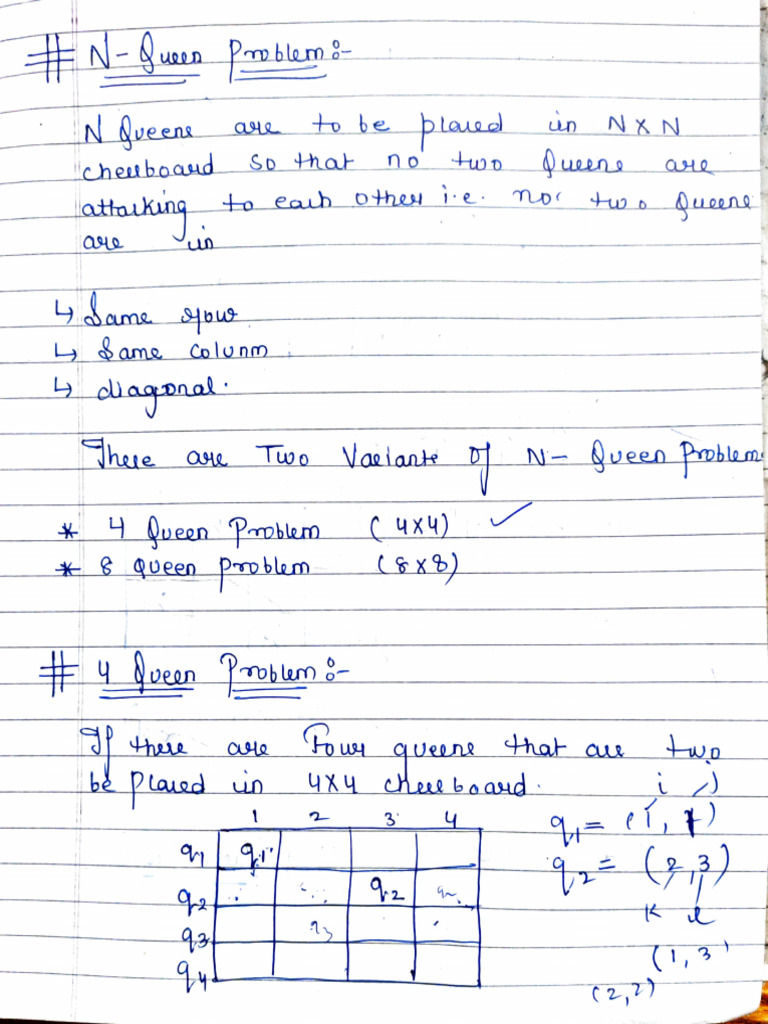 # N-Queen Problem:-
N Queens are to be placed in N x N
chessboard so that no two Queens are
attacking to each other i.e. no two Queens
are in
↳ Same row
↳ Same colunm
↳ diagonal.
There are Two Variants of N- Queen Problem
* 4 Queen Problem (4x4) ✓
* 8 Queen problem (8x8)
# 4 Queen Problem:-
If there are Four queens that are two
be placed in 4x4 chessboard.
i j
1 2 3 4
q1 = (1, 1)
q1 q1
q2 = (2,3)
q2 q2
k l
q3 q3
(1, 3
q4
(2,2)